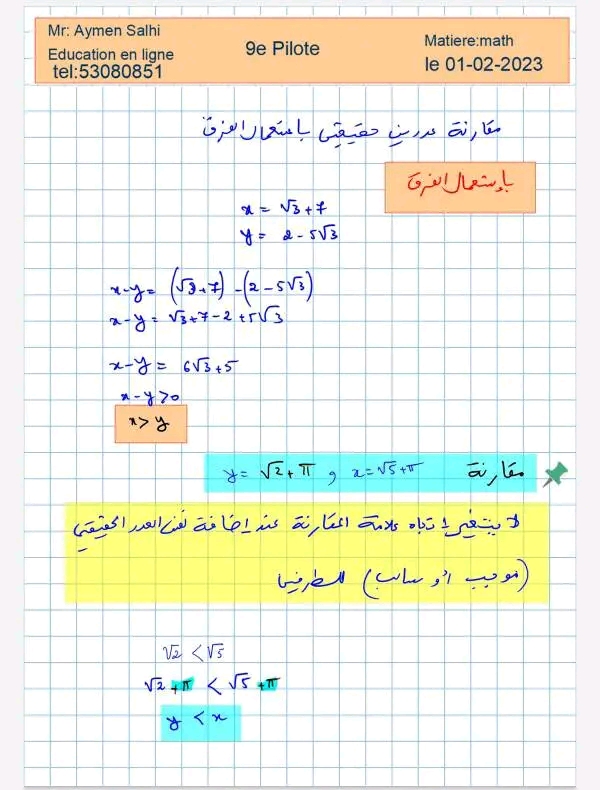 Mr: Aymen Salhi
Education en ligne
tel:53080851
9e Pilote
Matiere:math
le 01-02-2023
مقارنة عددين حقيقيين باستعمال الفرق
بإستعمال الفرق
x = √3+7
y = 2-5√3
x-y = (√3+7) -(2-5√3)
x-y = √3+7-2+5√3
x-y = 6√3+5
x-y>0
x>y
مقارنة x=√5+π و y= √2+π
لا يتغير اتجاه علامة المقارنة عند إضافة نفس العدد الحقيقي
(موجب أو سالب) للطرفين
√2 <√5
√2+π < √5+π
y < x